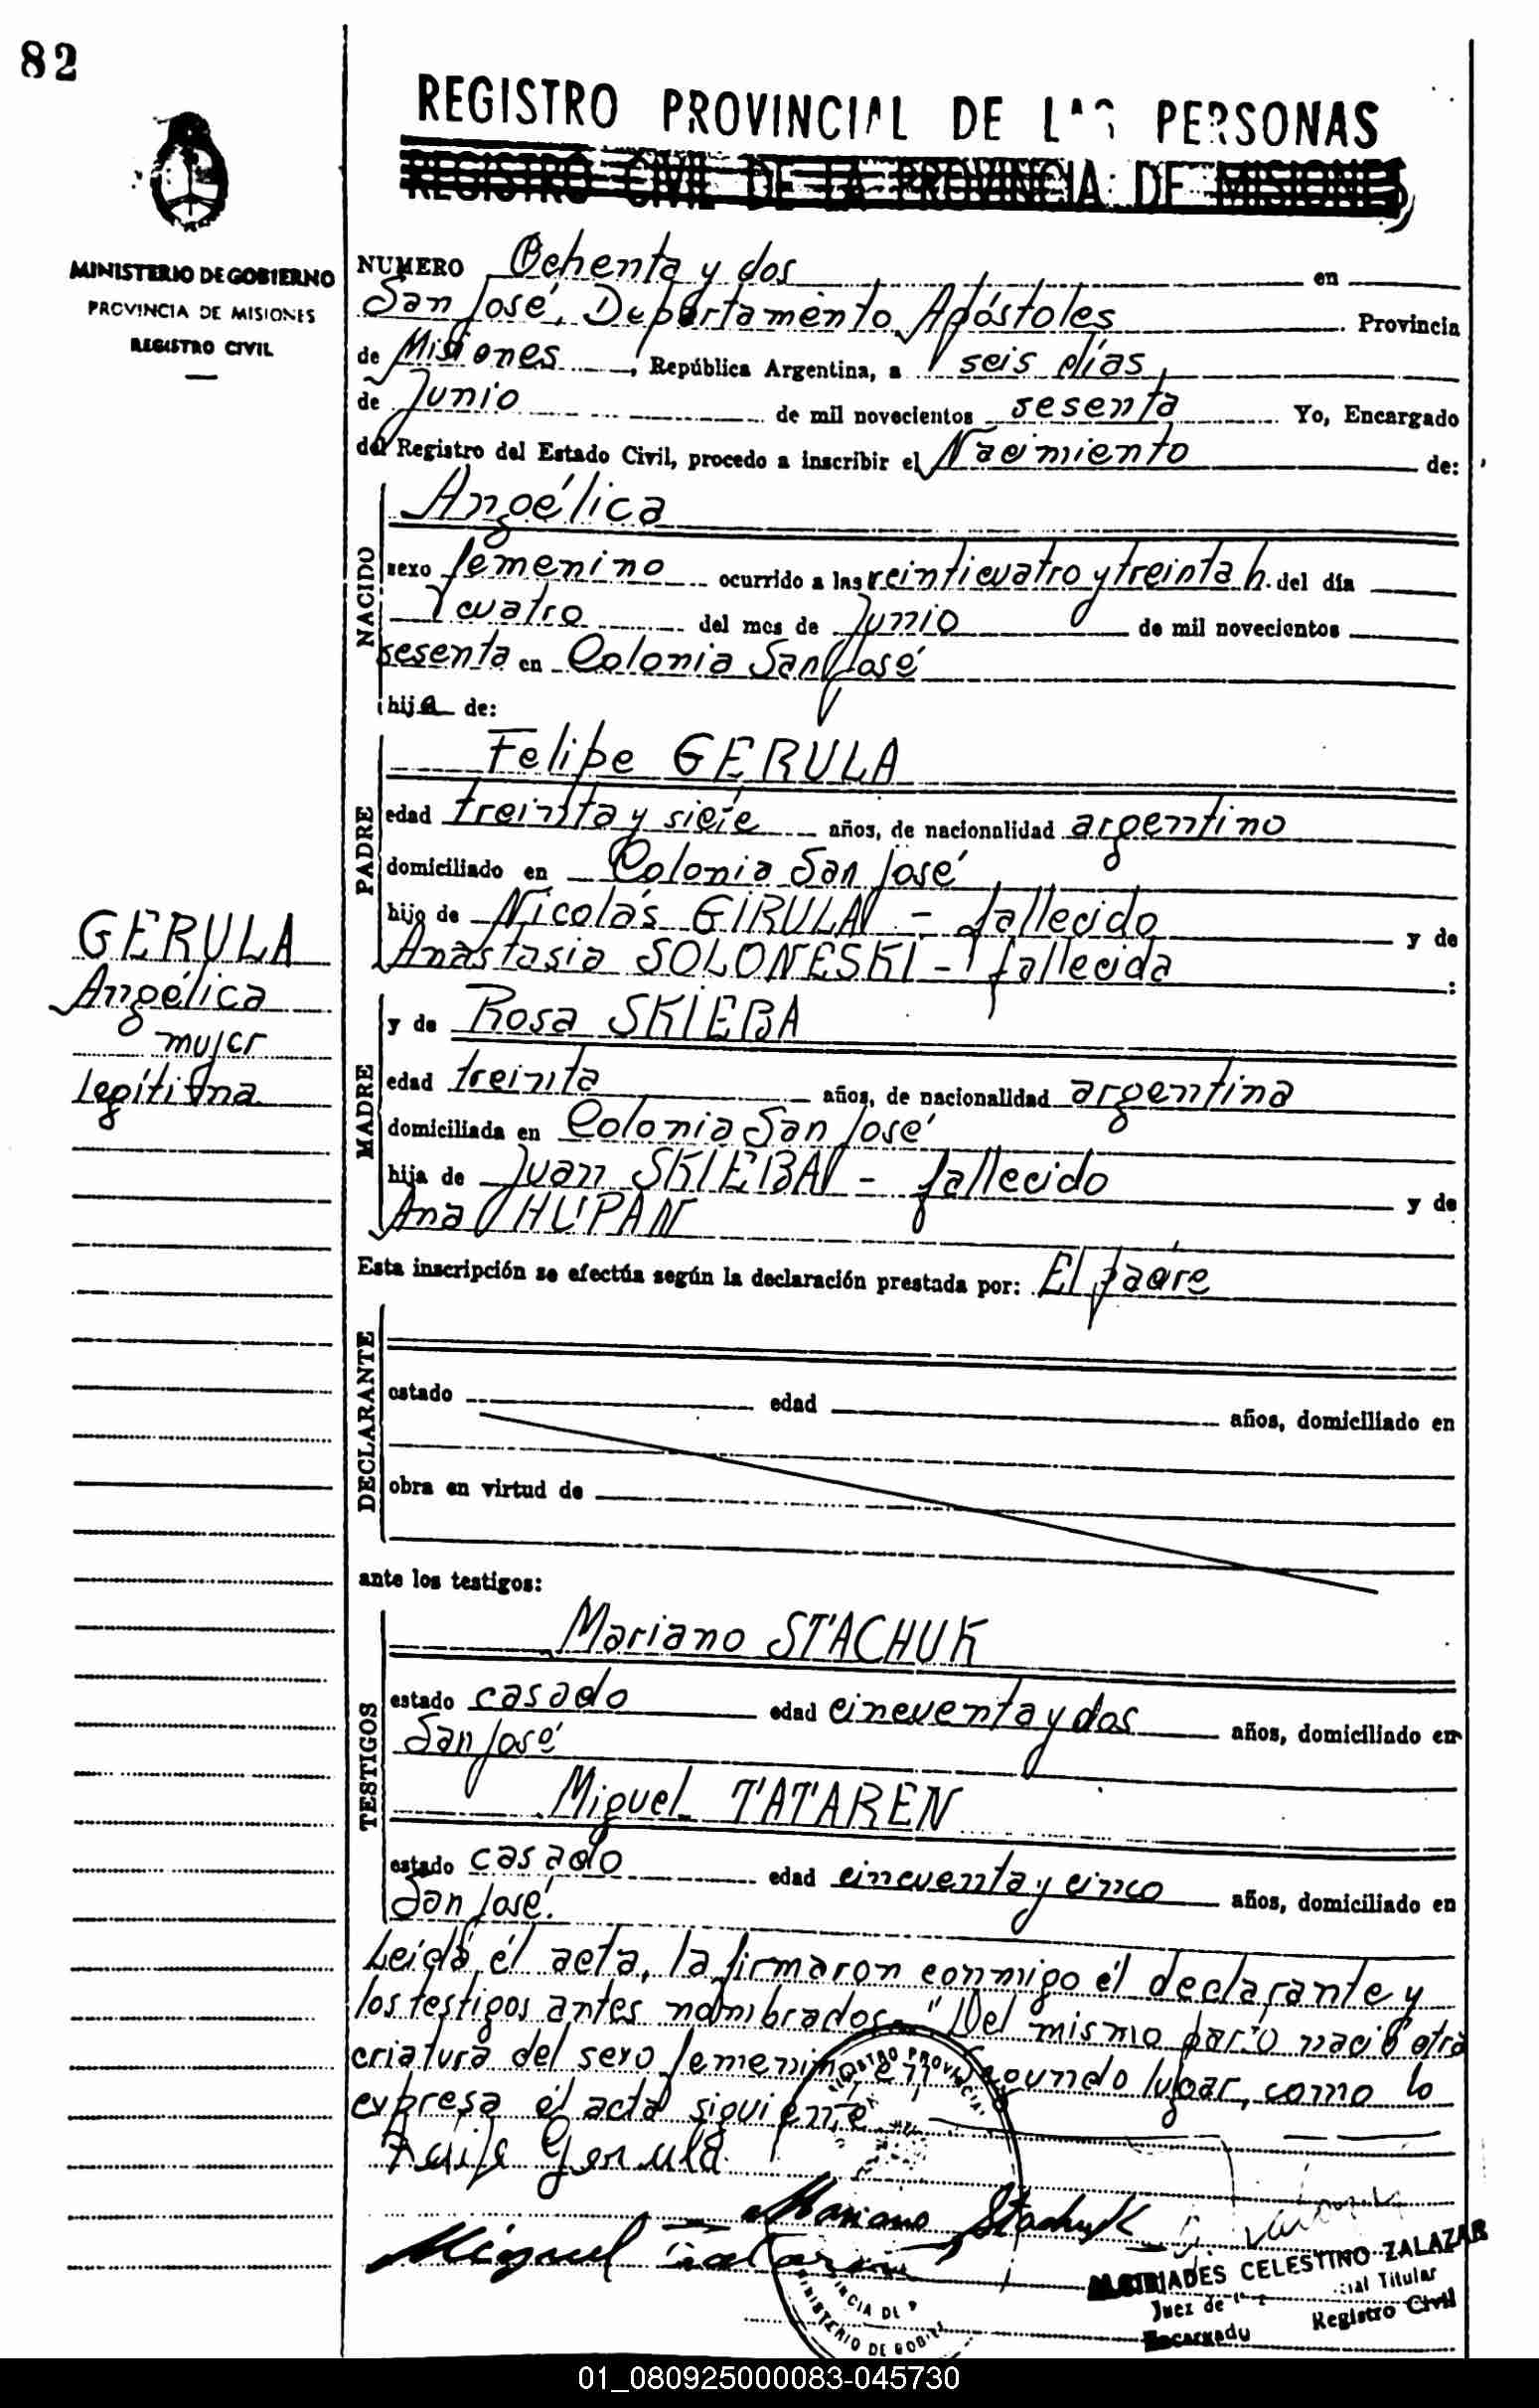 82
REGISTRO PROVINCIAL DE LAS PERSONAS
REGISTRO CIVIL DE LA PROVINCIA DE MISIONES
MINISTERIO DE GOBIERNO
PROVINCIA DE MISIONES
REGISTRO CIVIL
NUMERO Ochenta y dos en
San José, Departamento Apóstoles Provincia
de Misiones, República Argentina, a seis días
de Junio de mil novecientos sesenta Yo, Encargado
del Registro del Estado Civil, procedo a inscribir el Nacimiento de:
NACIDO
Angélica
sexo femenino ocurrido a las veinticuatro y treinta h. del día
cuatro del mes de Junio de mil novecientos
sesenta en Colonia San José
hija de:
PADRE
Felipe GERULA
edad treinta y siete años, de nacionalidad argentino
domiciliado en Colonia San José
hijo de Nicolás GIRULA - fallecido y de
Anastasia SOLONESKI - fallecida :
GERULA
Angélica
mujer
legítima
MADRE
y de Rosa SKIEBA
edad treinta años, de nacionalidad argentina
domiciliada en Colonia San José
hija de Juan SKIEBA - fallecido y de
Ana HUPAN
Esta inscripción se efectúa según la declaración prestada por: El padre
DECLARANTE
estado edad años, domiciliado en
obra en virtud de
ante los testigos:
TESTIGOS
Mariano STACHUK
estado casado edad cincuenta y dos años, domiciliado en
San José
Miguel TATAREN
estado casado edad cincuenta y cinco años, domiciliado en
San José.
Leída el acta, la firmaron conmigo el declarante y
los testigos antes nombrados.- "Del mismo parto nació otra
criatura del sexo femenino, en segundo lugar, como lo
expresa el acta siguiente
Felipe Gerula
Mariano Stachuk
Miguel Tataren
REGISTRO PROVINCIAL
MINISTERIO DE GOBIE
CELESTINO ZALAZAR
Juez de Titular
Encargado Registro Civil
01_080925000083-045730